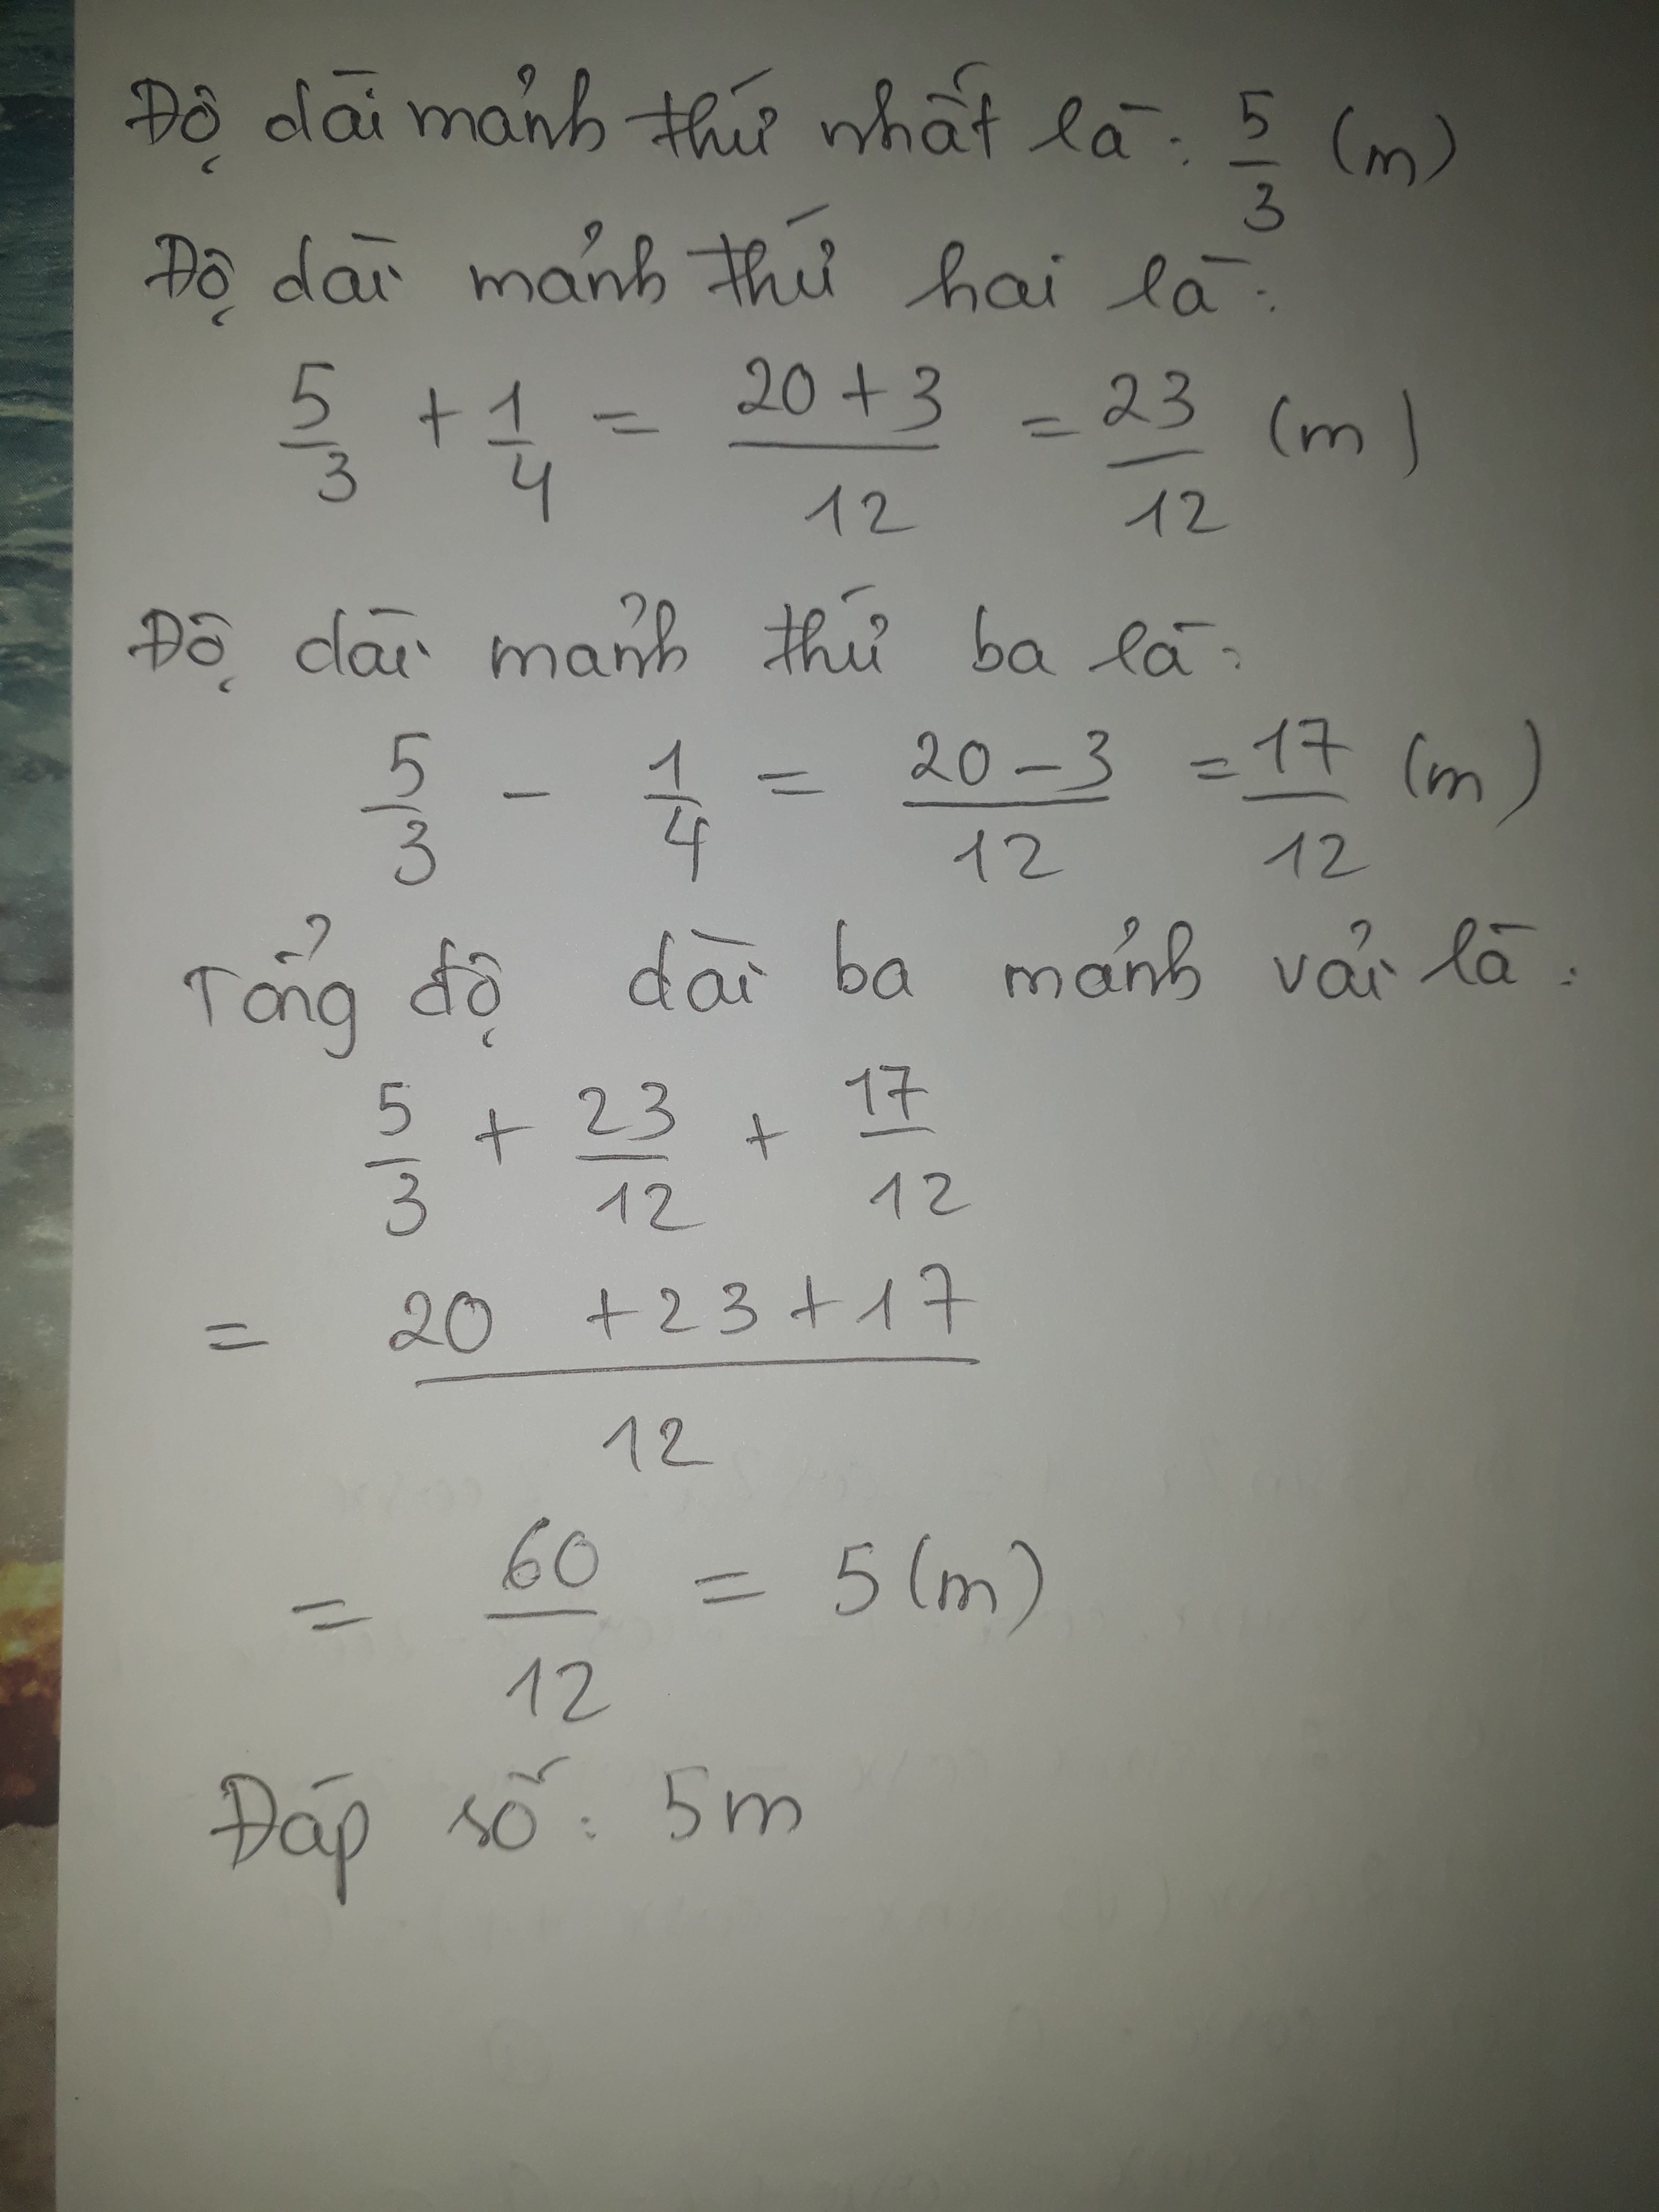 Độ dài mảnh thứ nhất là: 5/3 (m)
Độ dài mảnh thứ hai là:
5/3 + 1/4 = (20 + 3)/12 = 23/12 (m)
Độ dài mảnh thứ ba là:
5/3 - 1/4 = (20 - 3)/12 = 17/12 (m)
Tổng độ dài ba mảnh vải là:
5/3 + 23/12 + 17/12
= (20 + 23 + 17)/12
= 60/12 = 5 (m)
Đáp số: 5m